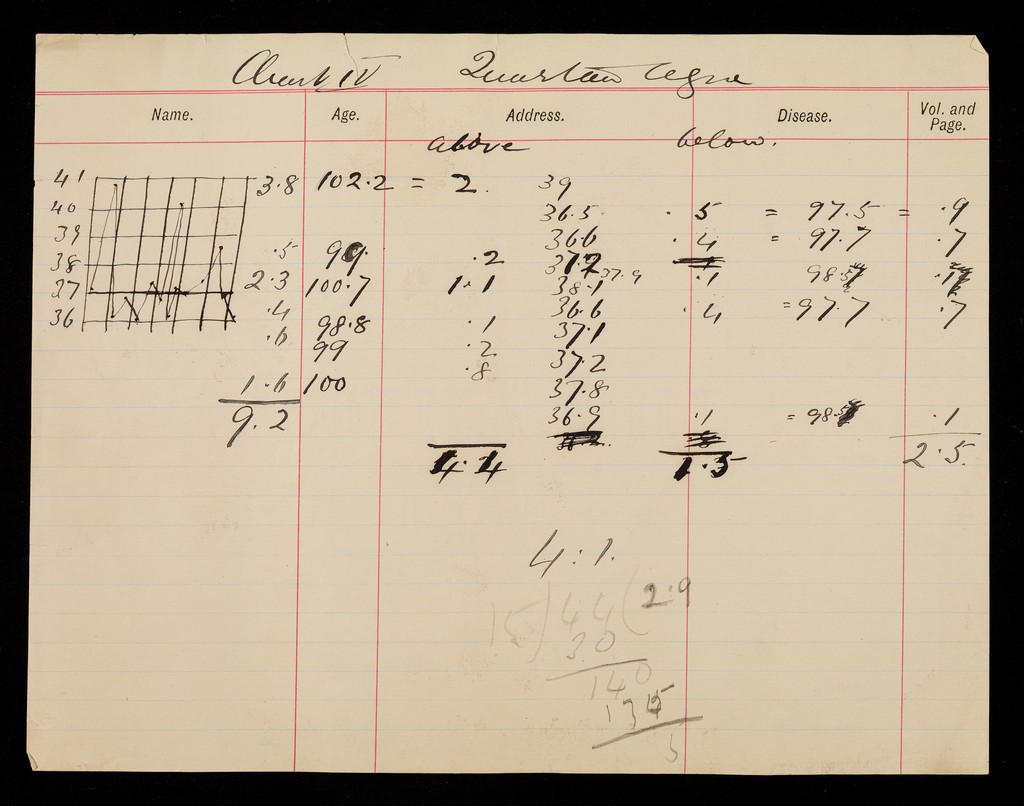 Chart IV Quartan Ague
Name. Age. Address. Disease. Vol. and Page.
above below.
41 3.8 102.2 = 2. 39
40 36.5 .5 = 97.5 = .9
39 36.6 .4 = 97.7 .7
38 .5 99. .2 37.2
37.9
37 2.3 100.7 1.1 38.1 .1 98.5 .1
36 .4 36.6 .4 = 97.7 .7
98.8 .1 37.1
.6 99 .2 37.2
1.6 100 .8 37.8
9.2 36.9 .1 = 98.5 .1
4.4 1.5 2.5.
4:1.
15)44(2.9
30
140
135
5